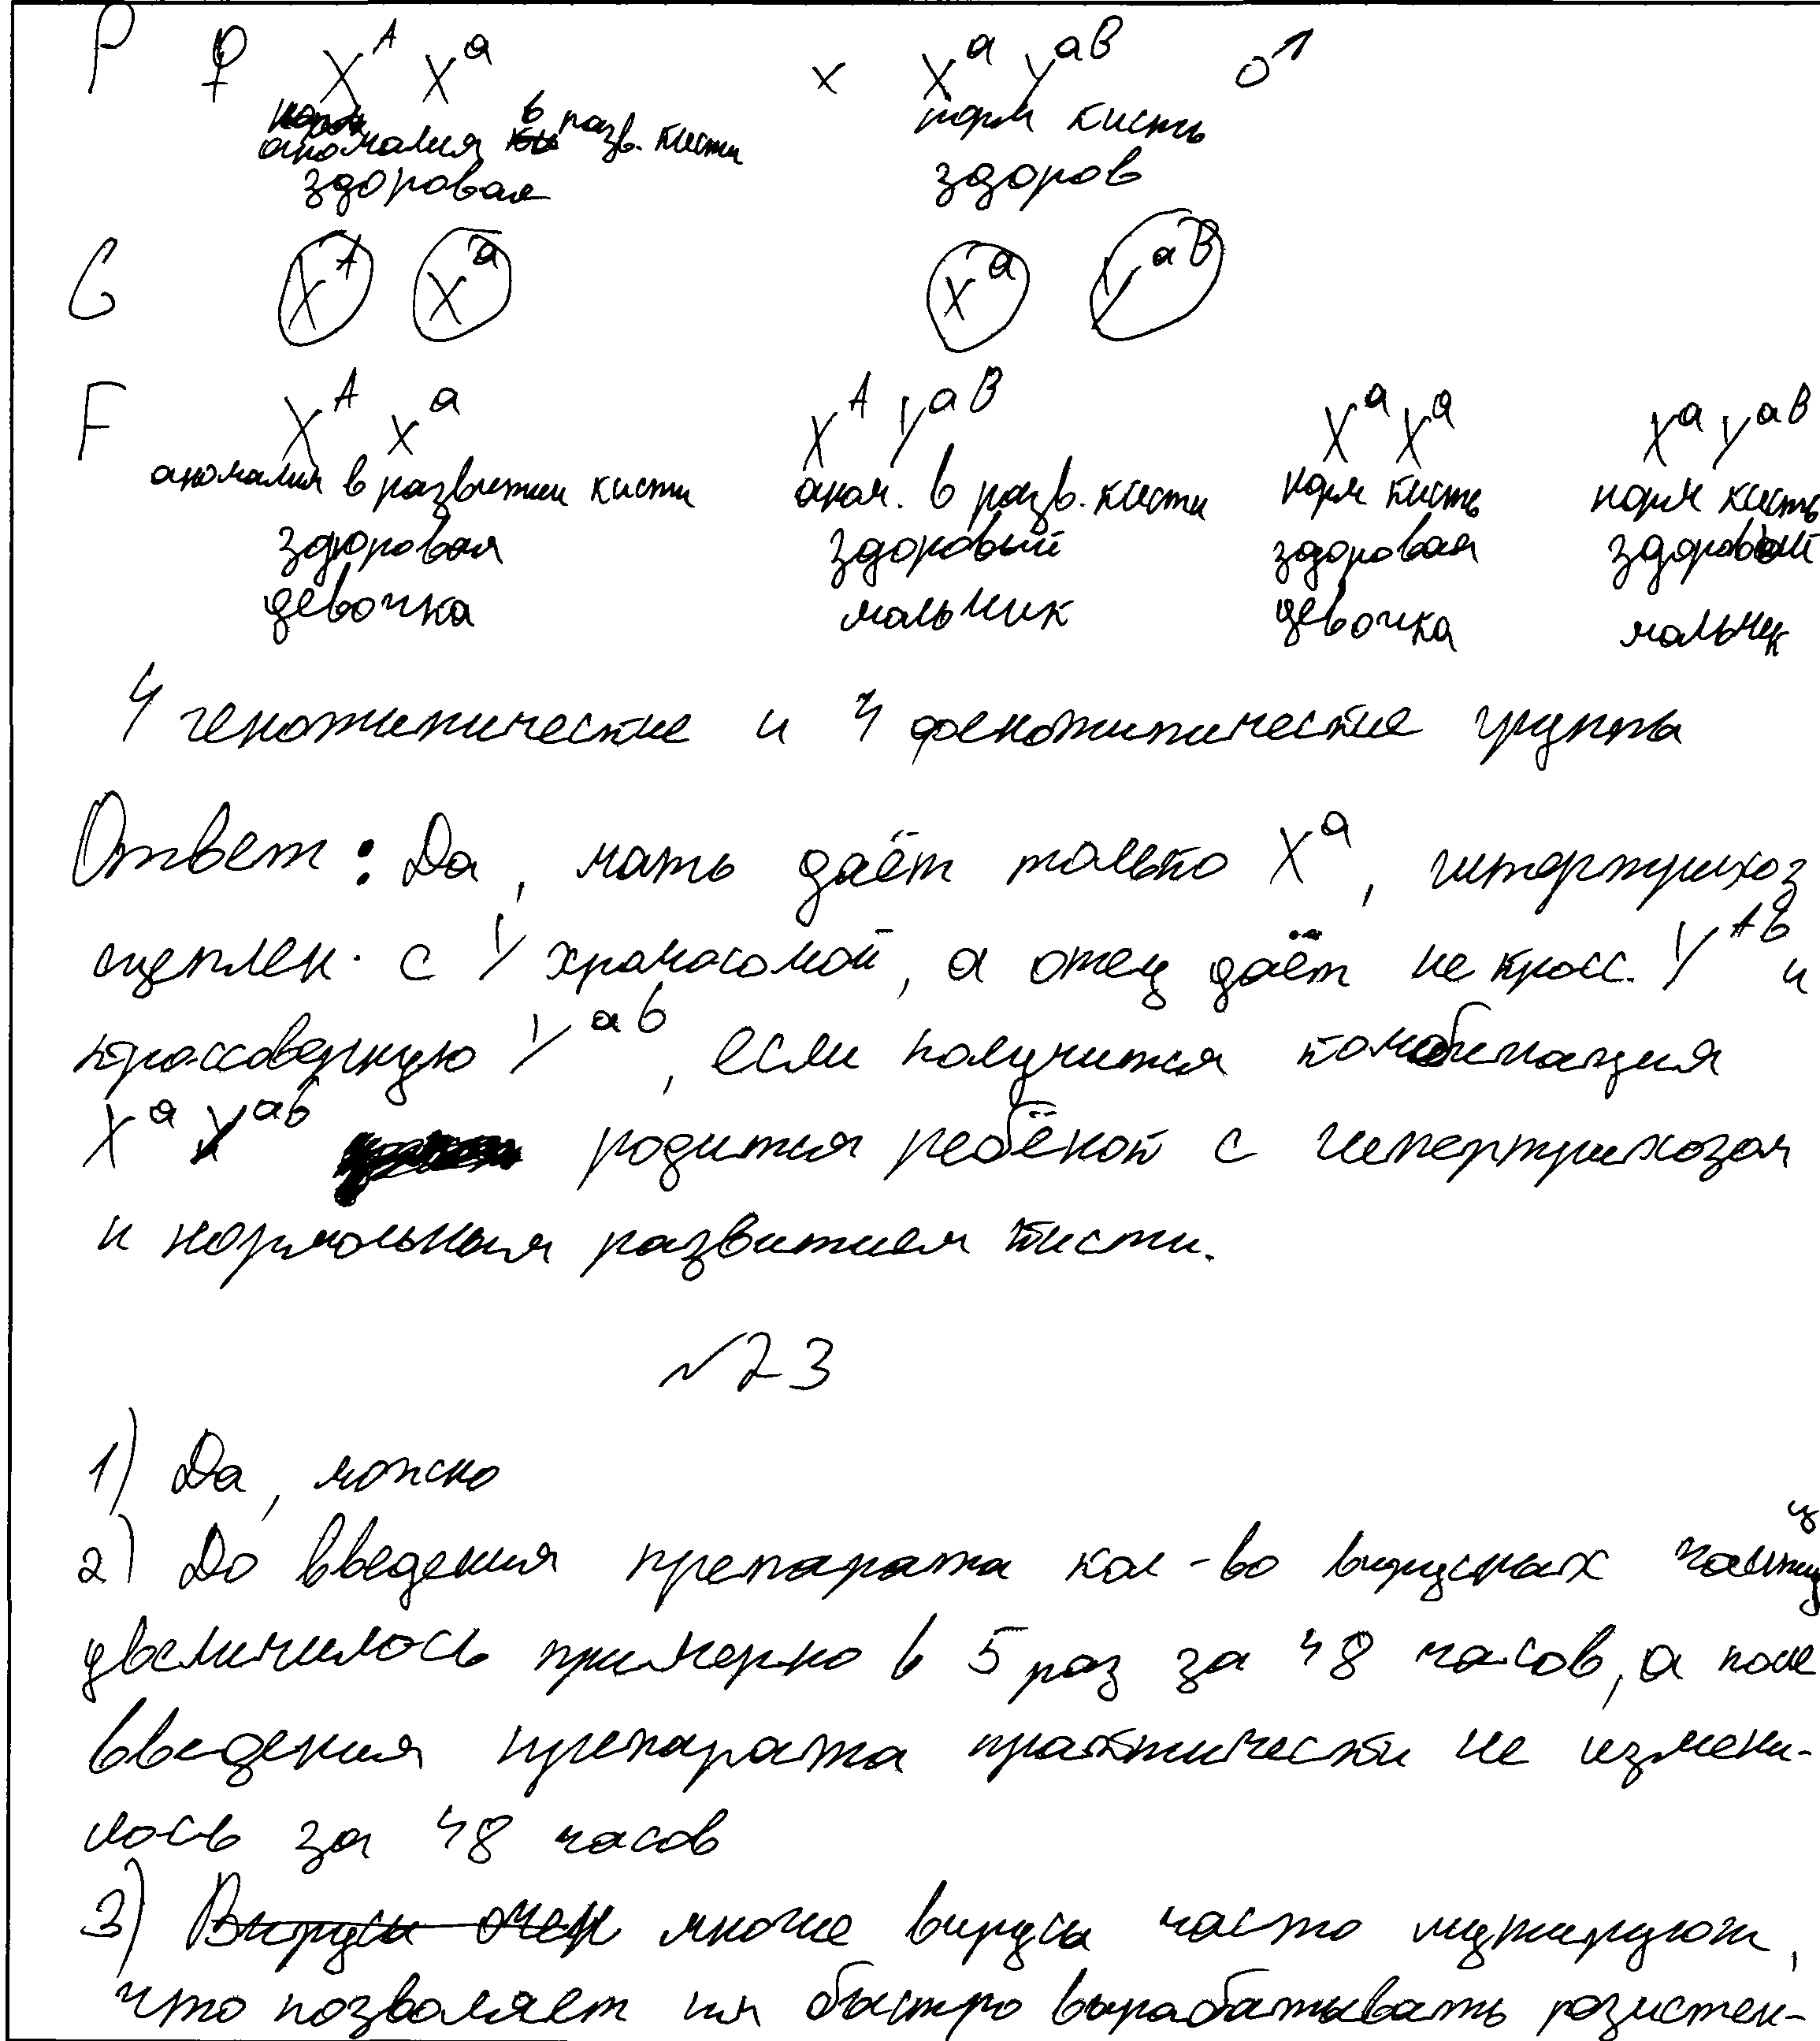 P ♀ X^A X^a х X^a Y^aB ♂
аномалия в разв. кисти норм кисть
здоровая здоров
G X^A X^a X^a Y^aB
F X^A X^a X^A Y^aB X^a X^a X^a Y^aB
аномалия в развитии кисти аном. в разв. кисти норм кисть норм кисть
здоровая здоровый здоровая здоровый
девочка мальчик девочка мальчик
4 генотипические и 4 фенотипические группы
Ответ: Да, мать даёт только X^a, гипертрихоз
сцеплен. с Y хромосомой, а отец даёт не кросс. Y^Ab и
кроссоверную Y^ab, если получится комбинация
X^a Y^ab родится ребёнок с гипертрихозом
и нормальным развитием кисти.
№23
1) Да, можно
2) До введения препарата кол-во вирусных частиц
увеличилось примерно в 5 раз за 48 часов, а после
введения препарата практически не измени-
лось за 48 часов
3) Вирусы очен многие вирусы часто мутируют,
что позволяет им быстро вырабатывать резистен-